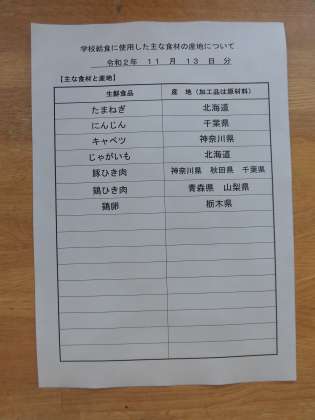 学校給食に使用した主な食材の産地について
令和2年 11 月 13 日 分
【主な食材と産地】
生鮮食品 産 地（加工品は原材料）
たまねぎ 北海道
にんじん 千葉県
キャベツ 神奈川県
じゃがいも 北海道
豚ひき肉 神奈川県 秋田県 千葉県
鶏ひき肉 青森県 山梨県
鶏卵 栃木県